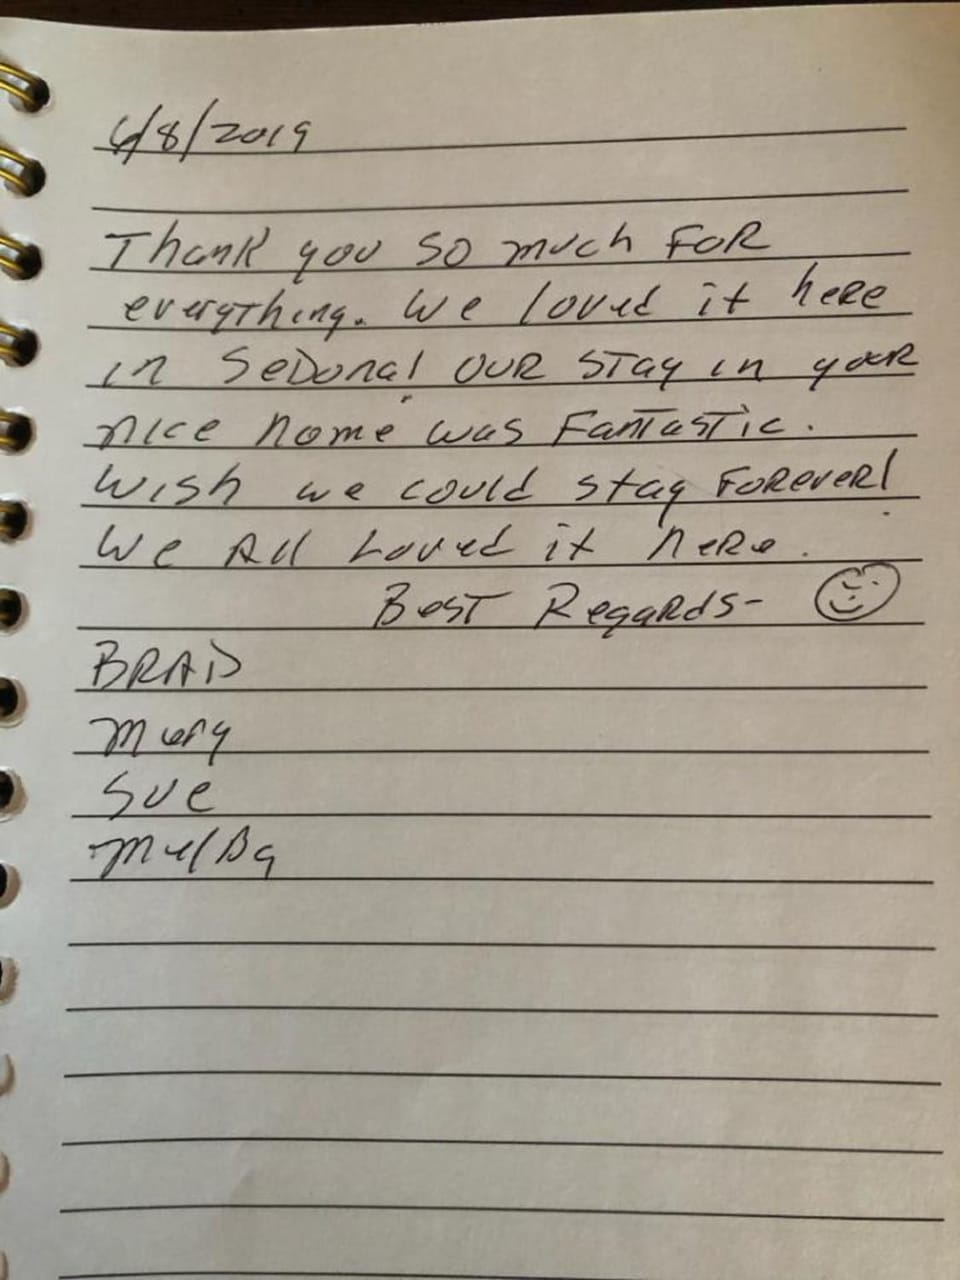 6/8/2019
Thank you so much FOR
everything. We loved it here
in Sedona! OUR stay in your
nice home was Fantastic.
Wish we could stay Forever!
We All Loved it here.
Best Regards-
BRAD
Mary
Sue